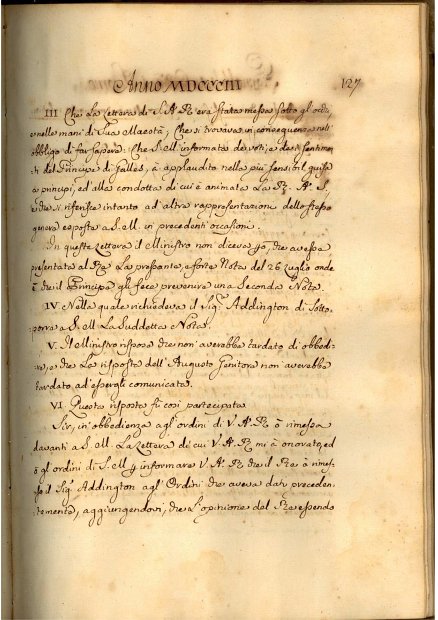 Anno MDCCCIII
127
III Che La Lettera di S. A. R. era stata messa sotto gl'occhi
e nelle mani di Sua Maestà, Che si trovava in conseguenza nell'
obbligo di far sapere: Che S. M. informata de' voti, e de' sentimen-
ti del Principe di Galles, à applaudito nella più sensibil guisa
a' principj, ed alla condotta di cui è animata La R. A. S.
e che si riferisce intanto ad altra rappresentazione dello stesso
genere esposta a S. M. in precedenti occasioni.
In queste Lettera il Ministro non diceva già, che avesse
presentata al Re La pressante, e forte Nota del 26 Luglio onde
è che il Principe gli fece prevenire una Seconda Nota.
IV. Nella quale richiedeva il Sig.r Addington di Sotto-
porre a S. M. La Suddetta Nota.
V. Il Ministro rispose che non averebbe tardato di obbedi-
re, e che La risposta dell'Augusto Genitore non averebbe
tardato ad essergli comunicata.
VI. Questa risposta fù così partecipata
Sir, in obbedienza agl'ordini di V. A. R. ò rimessa
davanti a S. M. La Lettera di cui V. A. R. mi à onorato, ed
ò gl'ordini di S. M. informare V. A. R. che il Re à rimes-
so il Sig.r Addington agl'Ordini che aveva dati preceden-
temente, aggiungendovi, che L'opinione del Re essendo